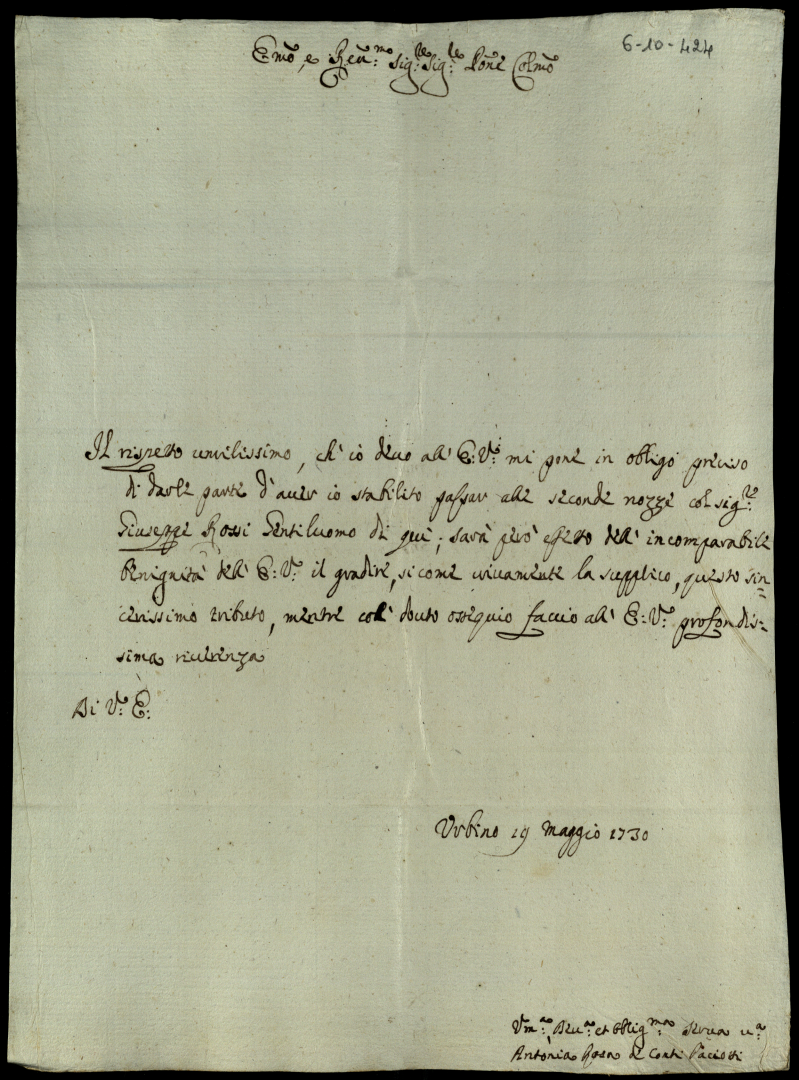 6-10-424
Emõ, e Reu:mo Sig:re Sig:re Pãne Colmõ
Il rispetto umilissimo, ch' io deuo all' E: V:ra mi pone in obligo preciso
di darle parte d'auer io stabilito passar alle seconde nozze col sig:re
Giuseppe Rossi Gentiluomo di quì; sarà però effetto dell' incomparabile
benignità dell' E: V:ra il gradire, si come uiuamente la supplico, questo sin=
cerissimo tributo, mentre coll' douto ossequio faccio all' E: V:ra profondis:
sima riuerenza
Di V:ra E:
Urbino 19 Maggio 1730
Um:a Deu:a et obblig:ma serua u:a
Antonia Rosa de Conti Paciotti